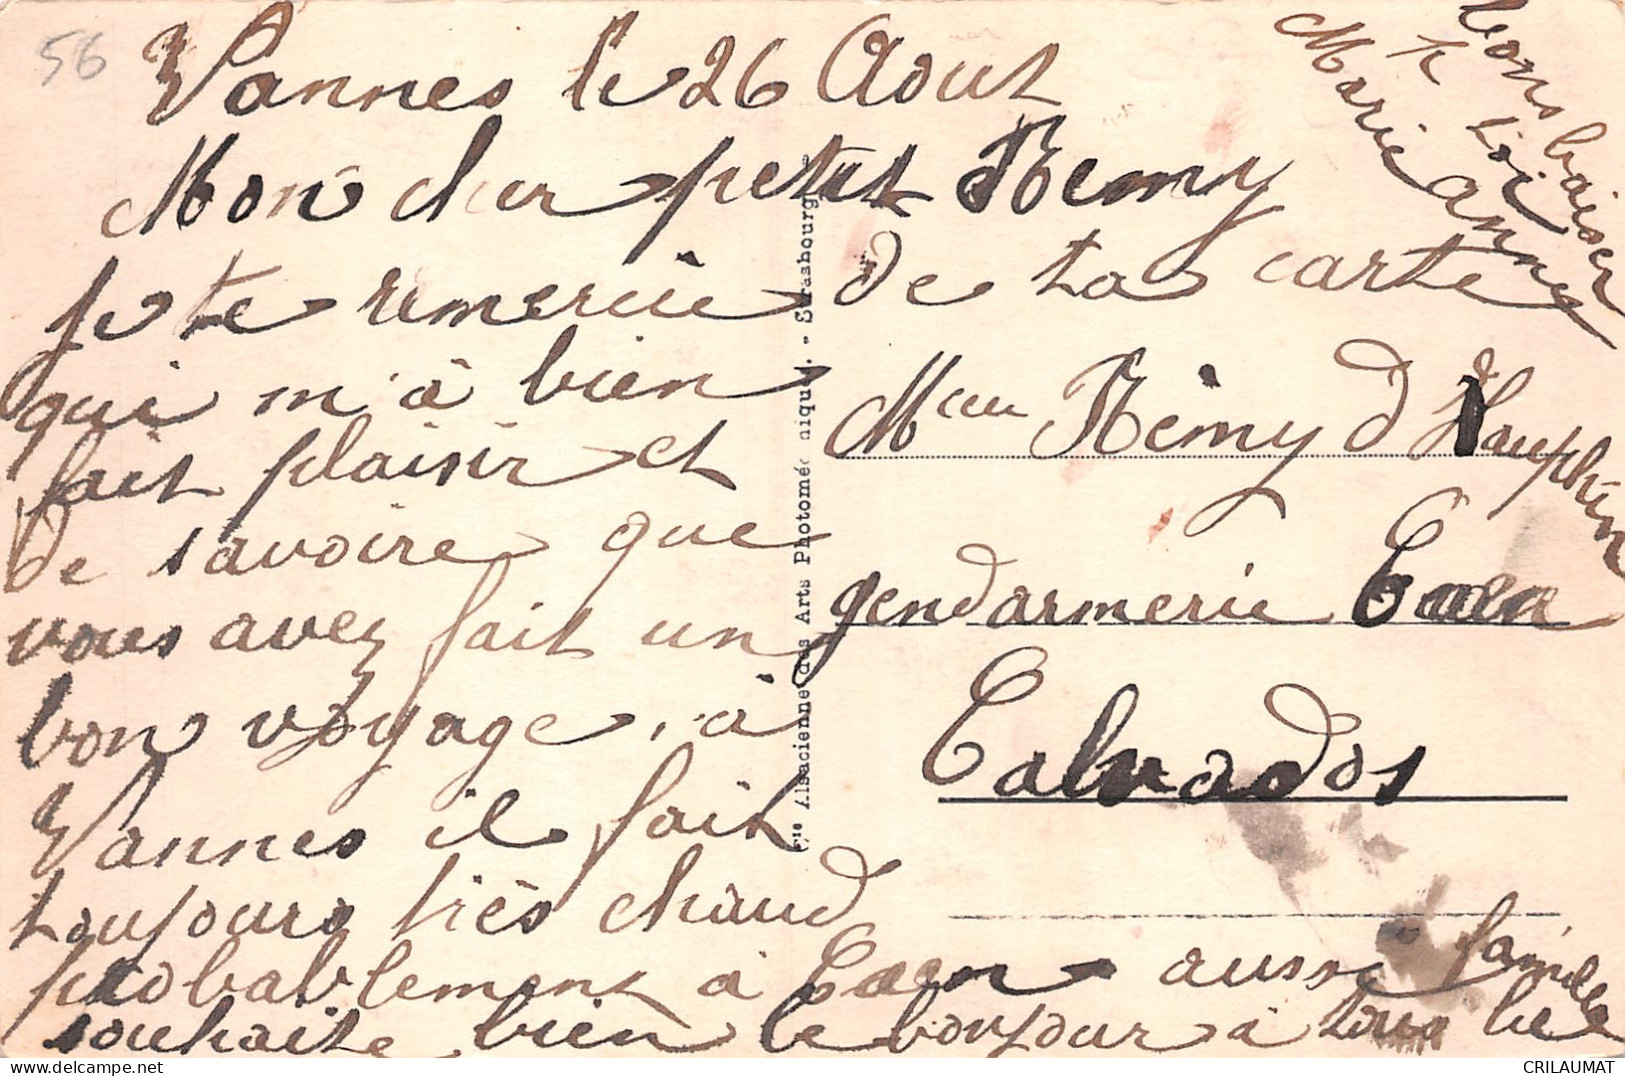 56
Vannes le 26 Aout
Mon cher petit Remy
je te remercie de ta carte
qui m'à bien
fait plaisir et
de savoire que
vous avez fait un
bon voyage, à
Vannes il fait
toujours très chaud
probablement à Caen aussi
souhaite bien le bonjour à tous
famille
bons baiser
à toi
Marie anny
Rèmy d'Hauphin
gendarmerie Caen
Calvados
Cie Alsacienne des Arts Photomécaniques - Strasbourg
CRILAUMAT